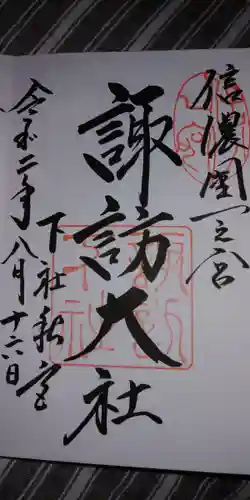 信濃國一之宮
諏訪大社
下社秋宮
令和二年八月十六日